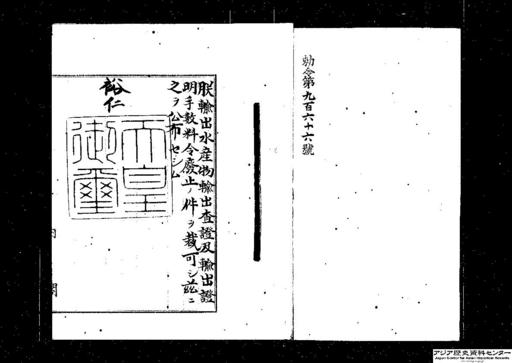 勅令第九百六十六號
朕輸出水産物輸出査證及輸出證
明手數料令廢止ノ件ヲ裁可シ茲ニ
之ヲ公布セシム
裕仁
天皇
御璽
内閣
アジア歴史資料センター
Japan Center for Asian Historical Records